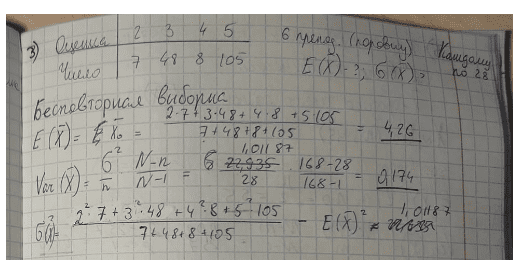 3) Оценка 2 3 4 5 6 препод. (поровну) Каждому
Число 7 48 8 105 E(X̄)-?, б(X̄)? по 28
Бесповторная выборка
E(X̄) = X̄₀ = (2·7+3·48+4·8+5·105)/(7+48+8+105) = 4,26
Var(X̄) = б²/n · (N-n)/(N-1) = 1,01187/28 · (168-28)/(168-1) = 0,174
б²(x) = (2²·7+3²·48+4²·8+5²·105)/(7+48+8+105) - E(X̄)² = 1,01187